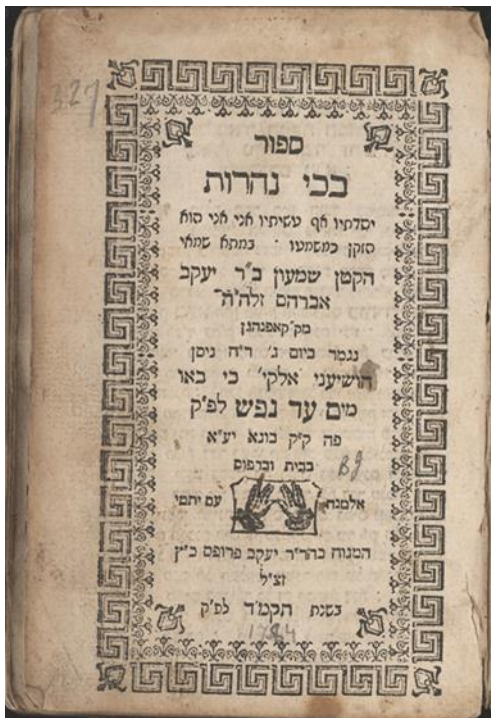 327
ספור
בכי נהרות
יסדתיו אף עשיתיו אני אני הוא
הזקן כמשמעו · במתא שמאי
הקטן שמעון ב״ר יעקב
אברהם זלה״ה
מק״קאפנהגן
נגמר ביום ג׳ ר״ח ניסן
הושיעני אלקי׳ כי באו
מים עד נפש לפ״ק
פה ק״ק בונא יע״א
בבית ובדפוס
אלמנת עם יתמי
המנוח כהר״ר יעקב פרופס כ״ץ
זצ״ל
בשנת תקמ״ד לפ״ק
1784